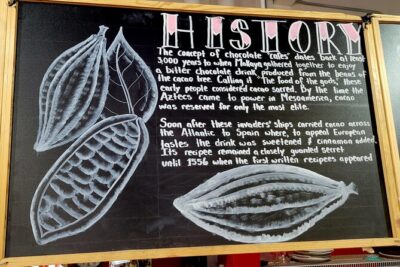 HISTORY
The concept of chocolate "cafes" dates back at least
3,000 years to when Mokaya gathered together to enjoy
a bitter chocolate drink, produced from the beans of
the cacao tree. Calling it "The food of the gods", these
early people considered cacao sacred. By the time the
Aztecs came to power in Mesoamerica, cacao
was reserved for only the most elite.
Soon after these invaders' ships carried cacao across
the Atlantic to Spain where, to appeal European
tastes the drink was sweetened & cinnamon added.
Its recipee remained a closely guarded secret
until 1556 when the first written recipees appeared